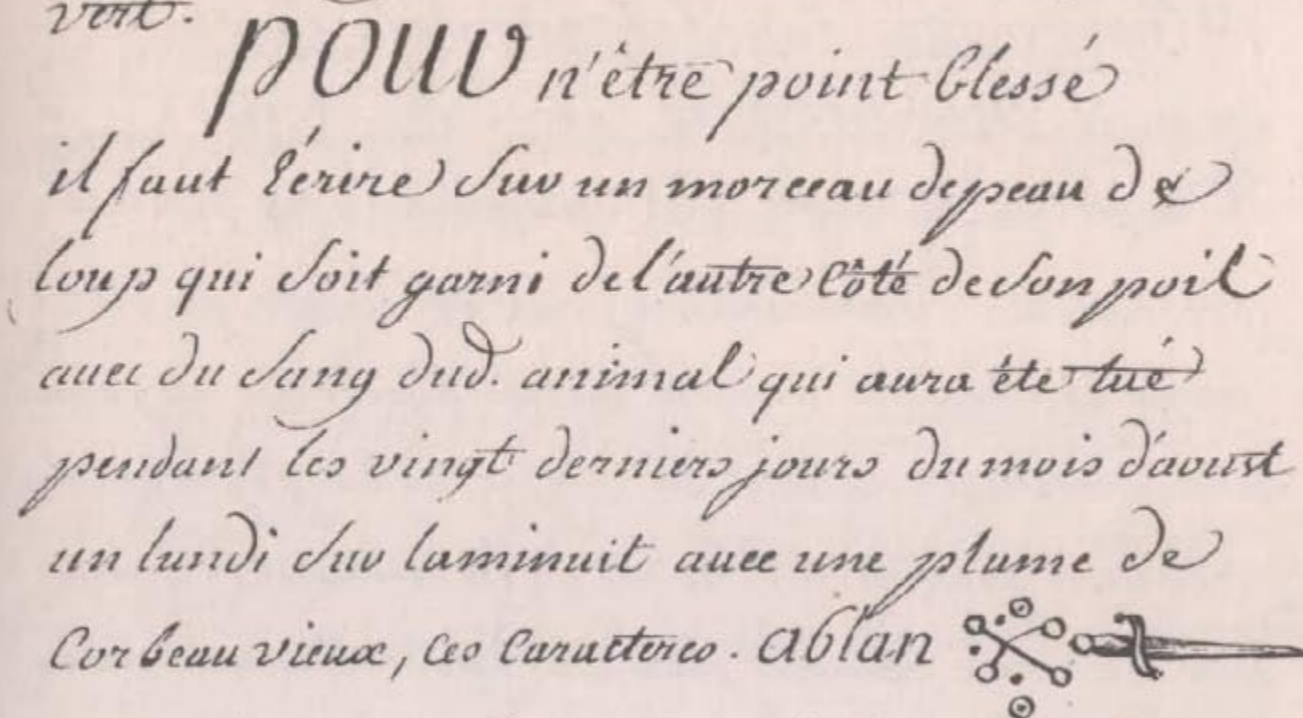 vert.
pour n'être point blessé
il faut écrire sur un morceau de peau de
loup qui soit garni de l'autre côté de son poil
avec du sang dud. animal qui aura été tué
pendant les vingt derniers jours du mois d'aoust
un lundi sur la minuit avec une plume de
Corbeau vieux, ces Caracteres. ablan